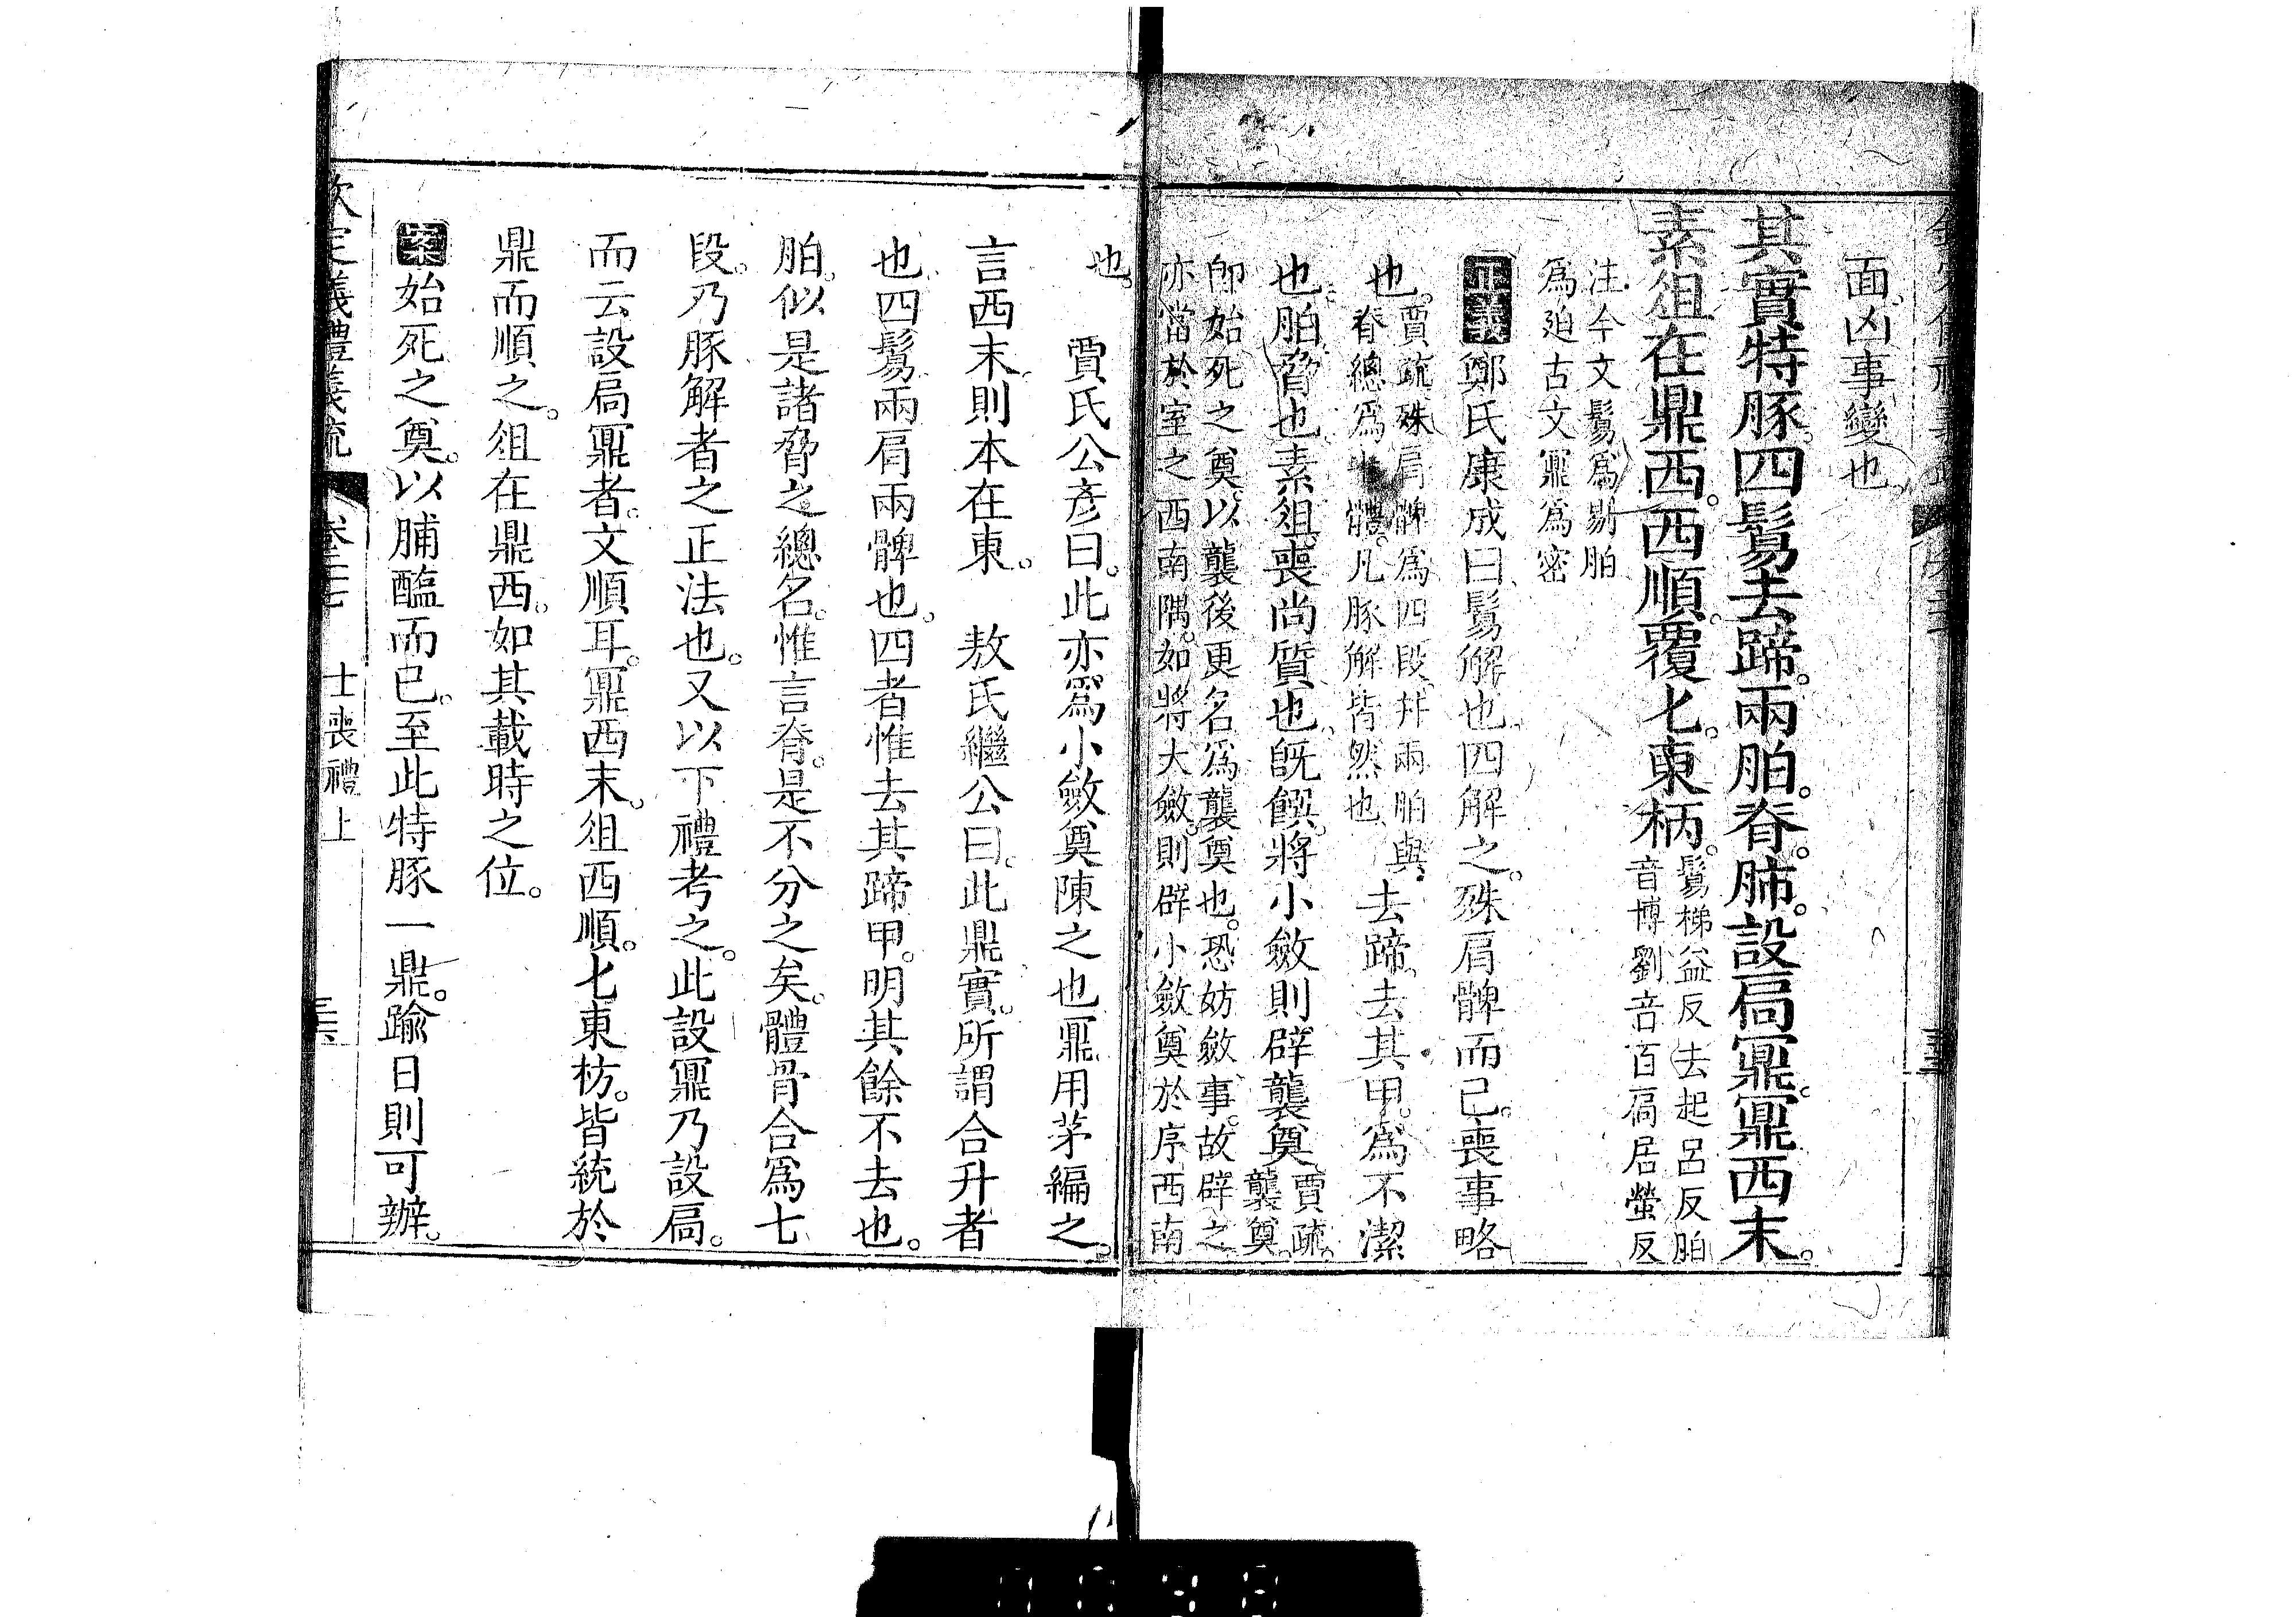 面凶事變也
其實特豚四鬄去蹄兩胉脊肺設扃鼏鼏西末
素俎在鼎西西順覆匕東柄鬄梯益反去起呂反胉
音博劉音百扃居螢反
注今文鬄爲剔胉
爲迫古文鼏爲密
正義鄭氏康成曰鬄解也四解之殊肩髀而已喪事略
也賈疏殊肩髀爲四段并兩胉與
脊總爲體凡豚解皆然也去蹄去其甲爲不潔
也胉脅也素俎喪尚質也旣饌將小斂則辟襲奠賈疏
襲奠
卽始死之奠以襲後更名爲襲奠也恐妨斂事故辟之
亦當於室之西南隅如將大斂則辟小斂奠於序西南
也 賈氏公彥曰此亦爲小斂奠陳之也鼏用茅編之
言西末則本在東 敖氏繼公曰此鼎實所謂合升者
也四鬄兩肩兩髀也四者惟去其蹄甲明其餘不去也
胉似是諸脅之總名惟言脊是不分之矣體骨合爲七
段乃豚解者之正法也又以下禮考之此設鼏乃設扃
而云設扃鼏者文順耳鼏西末俎西順匕東枋皆統於
鼎而順之俎在鼎西如其載時之位
案始死之奠以脯醢而已至此特豚一鼎踰日則可辦
欽定義禮義疏 卷二十七 士喪禮上